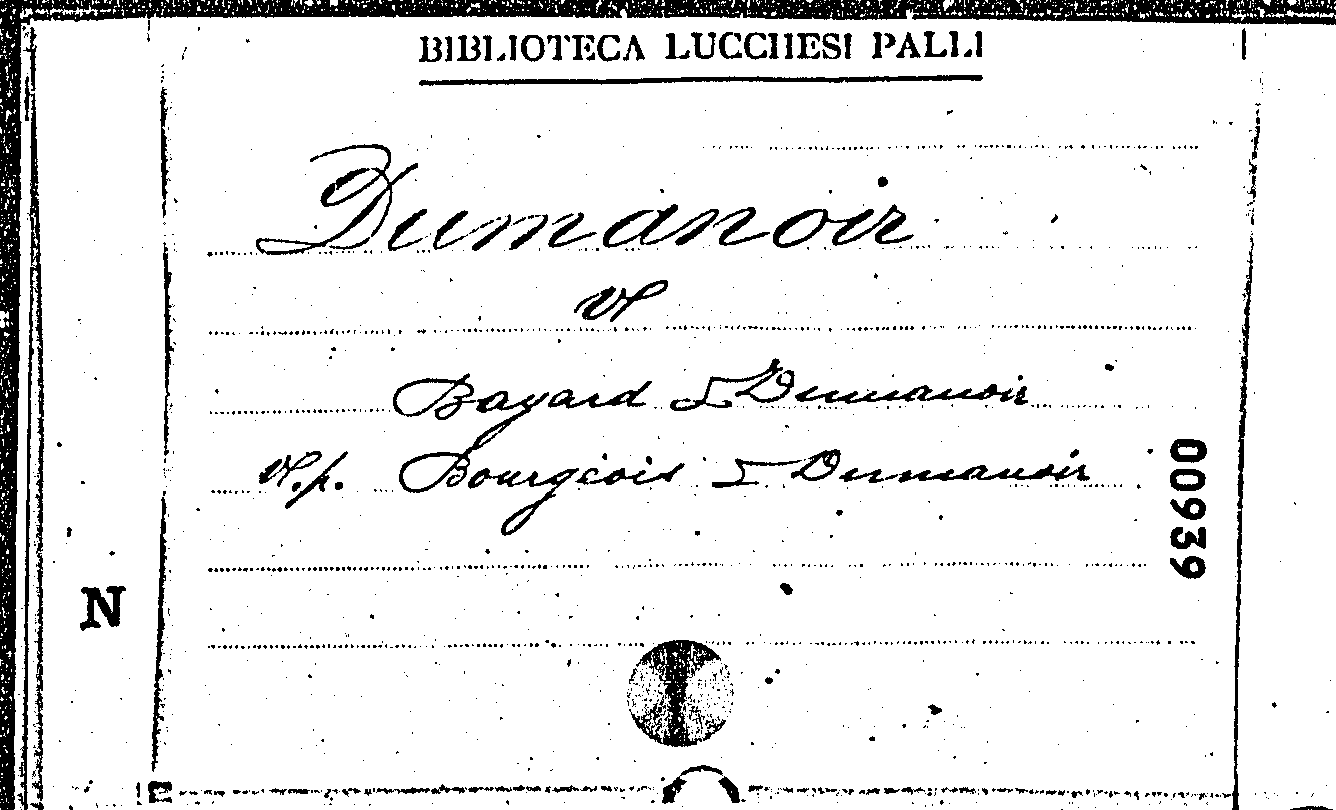 BIBLIOTECA LUCCHESI PALLI
Dumanoir
V
Bayard & Dumanoir
V.p. Bourgeois & Dumanoir
00939
N